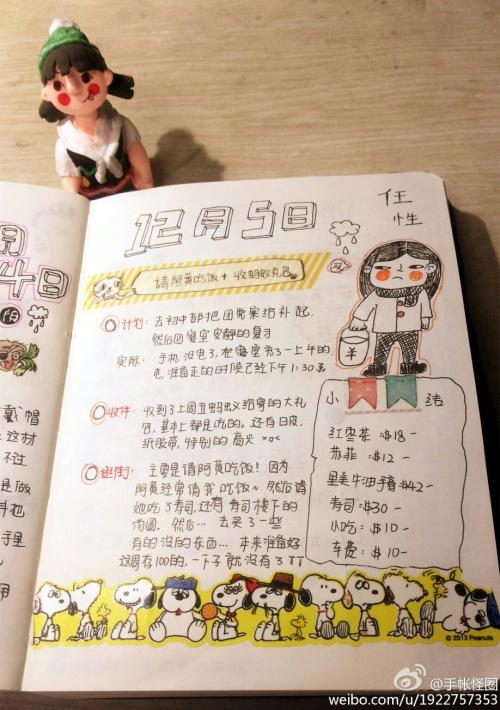 月
4日
阴
戴帽
这材
不过
是做
料把
子里
12月5日
任
性
请阿黄吃饭+收蚂蚁礼包
计划: 去初中部把团费案结补起,
然后回寝室安静的复习
实际: 手机没电了,在寝室充了一上午的
电,准备走的时候已经下午1:30了
收件: 收到了上周五蚂蚁给寄的大礼
包,基本上都是吃的。还有日及,
纸胶带,特别的高兴 >o<
逛街: 主要是请阿黄吃饭!因为
阿黄经常请我吃饭~然后请
她吃了寿司,还有寿司楼下的
汤圆。然后…去买了一些
有的没的东西…本来准备好
这周存100的,一下子就没有了TT
¥
小 结
红枣茶:$18-
苏菲:$12-
里美牛油手膏$42-
寿司:$30-
小吃:$10-
车费:$10-
© 2013 Peanuts
@手帐怪圈
weibo.com/u/1922757353